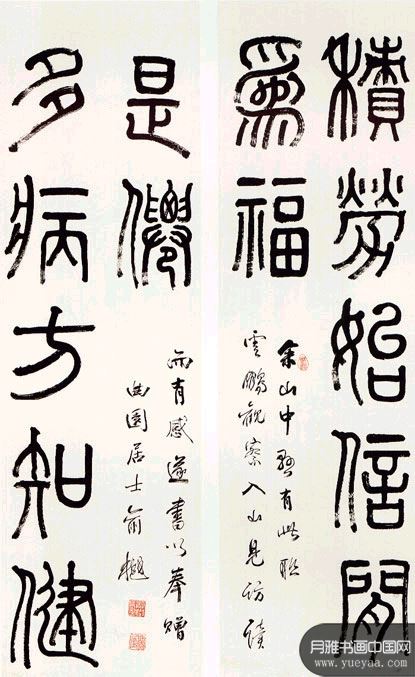 積勞始信閒
爲福
余山中懸有此聯
雲鵬觀察入山見訪讀
多病方知健
是僊
而有感遂書以奉贈
曲園居士俞樾
月雅书画中国网
www.yueyaa.com